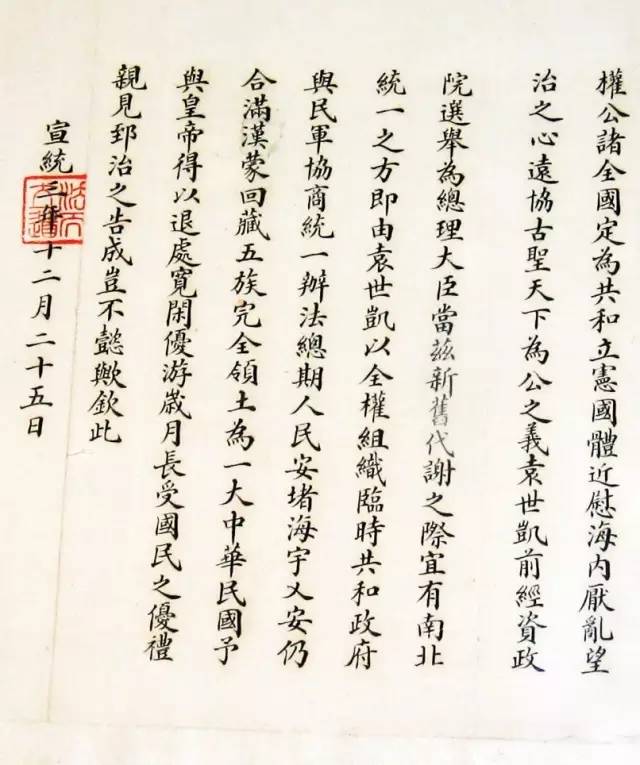 權公諸全國定為共和立憲國體近慰海內厭亂望
治之心遠協古聖天下為公之義袁世凱前經資政
院選舉為總理大臣當茲新舊代謝之際宜有南北
統一之方即由袁世凱以全權組織臨時共和政府
與民軍協商統一辦法總期人民安堵海宇乂安仍
合滿漢蒙回藏五族完全領土為一大中華民國予
與皇帝得以退處寬閑優游歲月長受國民之優禮
親見郅治之告成豈不懿歟欽此
宣統三年十二月二十五日
法天
立道